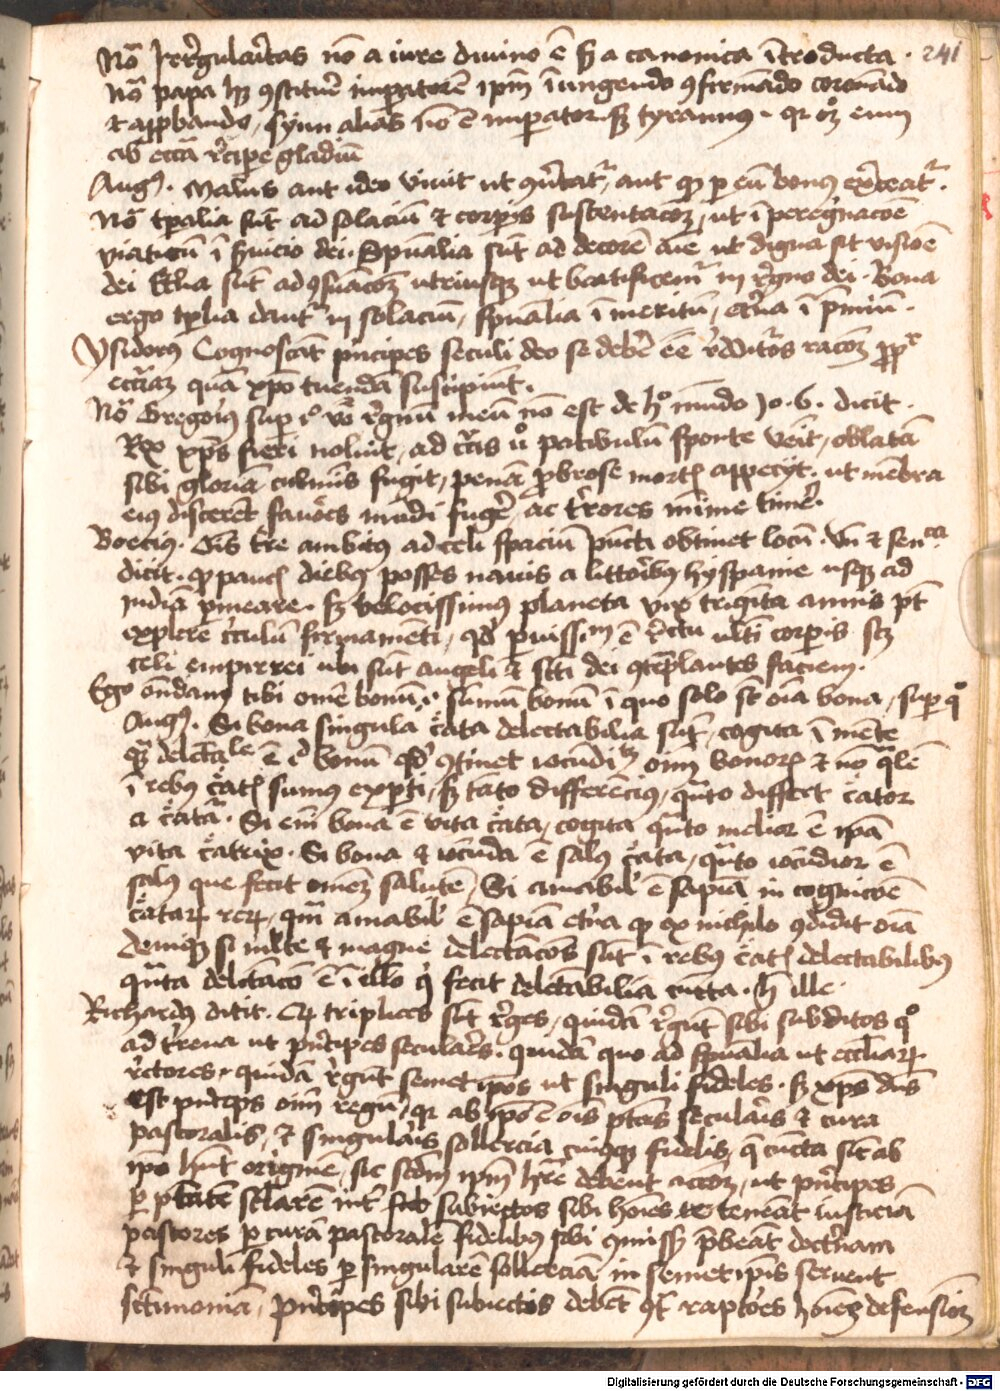 Nō Irregularitas nō a iure divino ē sʒ a canonica ītroducta · 241
Nō papa hʒ ꝯstituēr imperatorē ipm̄ īungendo ꝯfirmādo coronādo
⁊ approbando / synn alias nō ē imperator sʒ tyrannus · qr oʒ eum
ab ecc̄a rēcipe gladiū
Augꝯ. Malus aut ideo vivit ut ꝯūtat᷑, aut qꝫ ꝑ eū bonus ex̄ceat᷑.
Nō tp̄alia sūt ad solaciū ⁊ corpis sustentacōʒ, ut ī peregnacōē
viaticū ī sƺuicio dei. Spūalia sūt ad decorē āīe ut digna sit visiōē
dei Et̄na sūt ad ꝯsuācōʒ utriusqʒ ut beatificem᷑ in rēgno dei. Bona
ergo tp̄lia dant᷑ in solaciū, spūalia ī meritū, et̄na ī p̄miū.
Ysidorꝯ Cognoscāt pincipes seculi deo se debē ēē rēdditōs racōʒ ꝓpt᷑
ecc̄iaʒ quā xp̄o tuendā suscipiūt.
Nō Gregoriꝯ sup i° vō rēgnū meū nō est de h° mūdo Jo. 6. dicit.
Rex xp̄s fieri noluit, ad cr̄cis v° patibulū sponte venit, oblatā
sibi gloriā culmīs fugit, penā ꝓbrose mortꝭ appecijt. ut mēbra
eiꝯ discerēt favōēs mūdi fugēr, ac t̄rores mīme timēr.
Boeciꝯ. Oīs tr̄e ambitꝯ ad celi spaciū pūcti obtinet locū. Vn̄ ⁊ senᵉᶜᵃ
dicit. qꝫ paucꝭ diebꝯ posses navis a littoribꝯ hyspanie usqʒ ad
Indiā ꝑmeare. sʒ velocissimꝯ planeta vix trigīta annis pt̄
explere circulū firmamēti, qđ pvissiᵐ ē rēctu ultī corpis scʒ
celi empirrei ubi sūt angeli ⁊ sc̄ti dei ꝯtēplantes faciem.
Ego ōn̄dam tibi omē bonū .i. sūmū bonū ī quo solo st̄ oīa bona, sup q°
Augꝯ. Si bona singula cr̄ata delectabilia sūt, cogita ī mēte
qʒ delectaˡᵉ ē i° bonū qđ ꝯtinet iocūdiᵗᵉ oīm bonorꝭ ⁊ nō qlē
ī rebꝯ cr̄atꝭ sumus expti, sʒ tāto differēciꝯ, quto differt cr̄ator
a cr̄ata. Si em̄ bona ē vita cr̄ata, cogita quto melior ē ipā
vita cr̄atrix. Si bona ⁊ iocūda ē salꝯ cr̄ata, quto iocūdior ē
salꝯ que fecit omēʒ salutē, Si amabilˀ ē sapīa in cognicōē
cr̄atarꝝ rerꝝ, qm̄ amabilˀ ē sapīa et̄na qʒ ex nichilo ꝯdidit oīa
deniqʒ si ml̄te ⁊ magne delectacōes sūt ī rebꝯ cr̄atꝭ delectabilibꝯ
quta delc̄tacō ē ī illo qͥ fecit delectabilia cūcta. h̄ ille.
Richardꝯ dicit. Qʒ triplices sūt rēges, quidā rēgūt sibi subditos q°
ad t̄rena ut pn̄cipes seculares. quidā quo ad spūalia ut eccliarꝝ
rēctores, quidā rēgūt semetipos ut singuli fideles. sʒ xp̄s dūs
est pn̄cips oīm regū, qr ab ipō ē oīs ptās secularis ⁊ cura
pastoralis, ⁊ singularis sollercia cuiꝯqʒ fidelis, q̄ cūcta sic ab
ipō hn̄t origine, sic scdm̄ ipm̄ hr̄e debent accōʒ, ut pn̄cipes
ꝑ ptātē sclarē int̄ subiectos sibi hoīes teneāt iusticiā
pastores ꝑ curā pastoralē fidelibꝯ sibi ꝯmissꝭ p̄beāt doctn̄am
⁊ singuli fideles ꝑ singularē sollerciā in semetipis servent
sct̄imoniā, pn̄cipes sibi subiectis debēt ꝯt̄ raptōes hoīes defensiōʒ
Digitalisierung gefördert durch die Deutsche Forschungsgemeinschaft - DFG